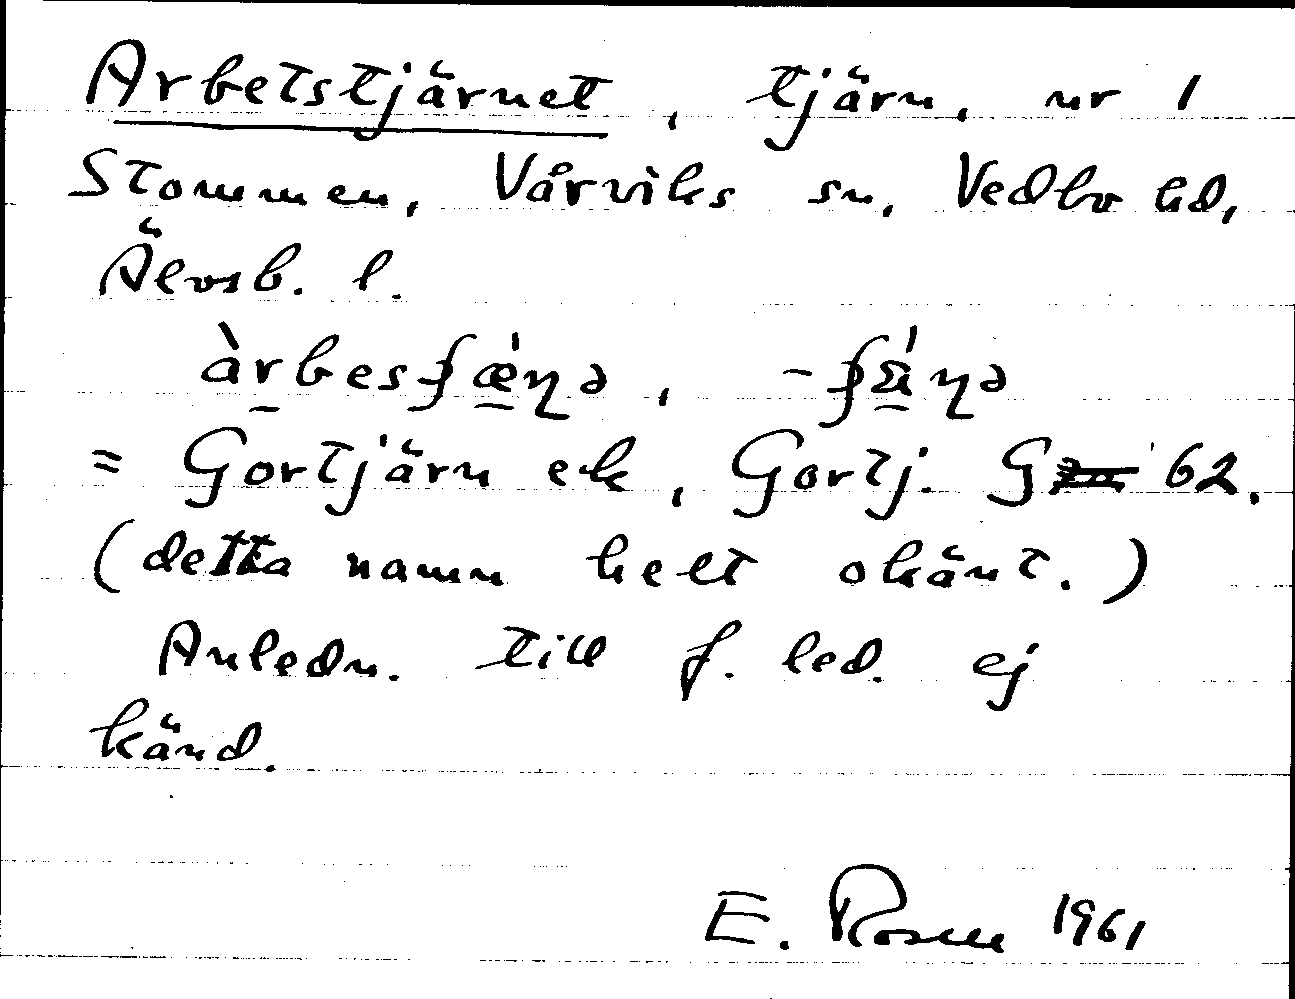 Arbetstjärnet, tjärn, nr 1
Stommen, Vårviks sn, Vedbo hd,
Älvsb. l.
= Gortjärn ek, Gortj. G 62.
(detta namn helt okänt.)
Anledn. till f. led. ej
känd.
E. Rosell 1961